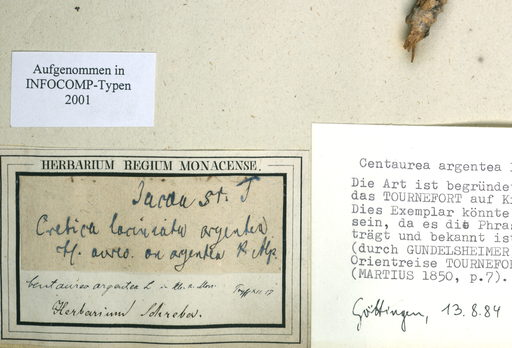 Aufgenommen in
INFOCOMP-Typen
2001
HERBARIUM REGIUM MONACENSE.
Jacea st. T
Cretica laciniata argentea
fl. aureo. an argentea P. Alp.
Centaurea argentea L.
Herbarium Schreber.
Centaurea argentea
Die Art ist begründe
das TOURNEFORT auf K
Dies Exemplar könnte
sein, da es die Phras
trägt und bekannt ist
(durch GUNDELSHEIMER
Orientreise TOURNEFO
(MARTIUS 1850, p.7).
Göttingen, 13.8.84